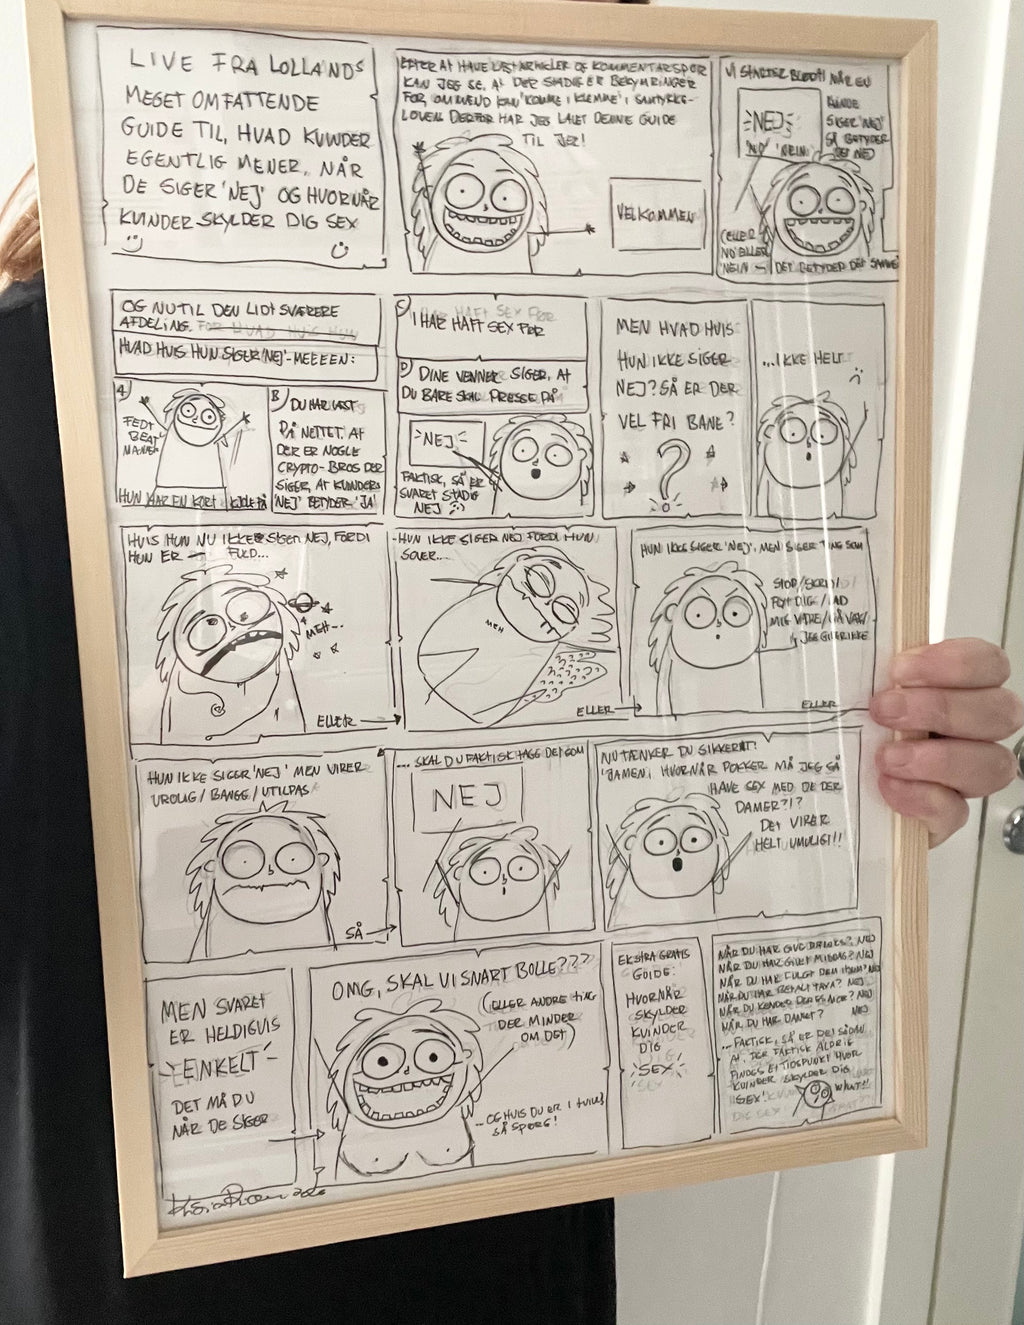 LIVE FRA LOLLANDS
MEGET OMFATTENDE
GUIDE TIL, HVAD KVINDER
EGENTLIG MENER, NÅR
DE SIGER 'NEJ' OG HVORNÅR
KVINDER SKYLDER DIG SEX
EFTER AT HAVE LÆST ARTIKLER OG KOMMENTARSPOR
KAN JEG SE, AT DER STADIG ER BEKYMRINGER
FOR, OM MÆND KAN 'KOMME I KLEMME' I SAMTYKKE-
LOVEN. DERFOR HAR JEG LAVET DENNE GUIDE
TIL JER!
VELKOMMEN
VI STARTER BLØDT! NÅR EN
KVINDE
SIGER 'NEJ'
SÅ BETYDER
DET NEJ
NEJ
'NO' 'NEIN'
(ELLER
NO ELLER
'NEIN -
DET BETYDER DET SAMME)
OG NU TIL DEN LIDT SVÆRERE
AFDELING.
HVAD HVIS HUN SIGER 'NEJ' - MEEEEN:
A)
FEDT
BEAT
MANNER
HUN HAR EN KORT KJOLE PÅ
B) DU HAR LÆST
PÅ NETTET, AT
DER ER NOGLE
CRYPTO-BROS DER
SIGER, AT KVINDERS
'NEJ' BETYDER 'JA'
C) I HAR HAFT SEX FØR
D) DINE VENNER SIGER, AT
DU BARE SKAL PRESSE PÅ
NEJ
FAKTISK, SÅ ER
SVARET STADIG
NEJ
MEN HVAD HVIS
HUN IKKE SIGER
NEJ? SÅ ER DER
VEL FRI BANE?
?
...IKKE HELT
HVIS HUN NU IKKE SIGER NEJ, FORDI
HUN ER FULD...
MEH...
ELLER
HUN IKKE SIGER NEJ FORDI HUN
SOVER...
MEH
ELLER
HUN IKKE SIGER 'NEJ', MEN SIGER TING SOM
STOP/SKRID/
FLYT DIG/LAD
MIG VÆRE/GÅ VÆK/
JEG GIDER IKKE
ELLER
HUN IKKE SIGER 'NEJ' MEN VIRER
UROLIG/BANGE/UTILPAS
SÅ
... SKAL DU FAKTISK TAGE DET SOM
NEJ
NU TÆNKER DU SIKKERT:
'JAMEN, HVORNÅR POKKER MÅ JEG SÅ
HAVE SEX MED DE DER
DAMER?!?
DET VIRER
HELT UMULIGT!!
MEN SVARET
ER HELDIGVIS
ENKELT
DET MÅ DU
NÅR DE SIGER
OMG, SKAL VI SNART BOLLE???
(ELLER ANDRE TING
DER MINDER
OM DET)
...OG HVIS DU ER I TVIVL
SÅ SPØRG!
EKSTRA GRATIS
GUIDE:
HVORNÅR
SKYLDER
KVINDER
DIG
SEX
NÅR DU HAR GIVET DRINKS? NEJ
NÅR DU HAR GIVET MIDDAG? NEJ
NÅR DU HAR FULGT DEM HJEM? NEJ
NÅR DU HAR BETALT TAXA? NEJ
NÅR DU KENDER DERES MOR? NEJ
NÅR DU HAR DANSET? NEJ
... FAKTISK, SÅ ER DET SÅDAN
AT, DER FAKTISK ALDRIG
FINDES ET TIDSPUNKT HVOR
KVINDER SKYLDER DIG
SEX!
WHAT!!